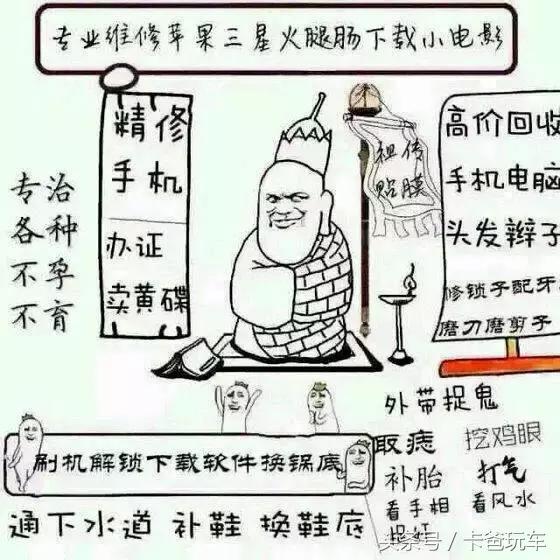 专业维修苹果三星火腿肠下载小电影
精修
手机
办证
卖黄碟
专治
各种
不孕
不育
祖传
贴膜
高价回收
手机电脑
头发辫子
修锁子配牙
磨刀磨剪子
外带捉鬼
取痣 挖鸡眼
补胎 打气
看手相 看风水
捉奸
刷机解锁下载软件换锅底
通下水道 补鞋 换鞋底
头条号 / 卡爸玩车